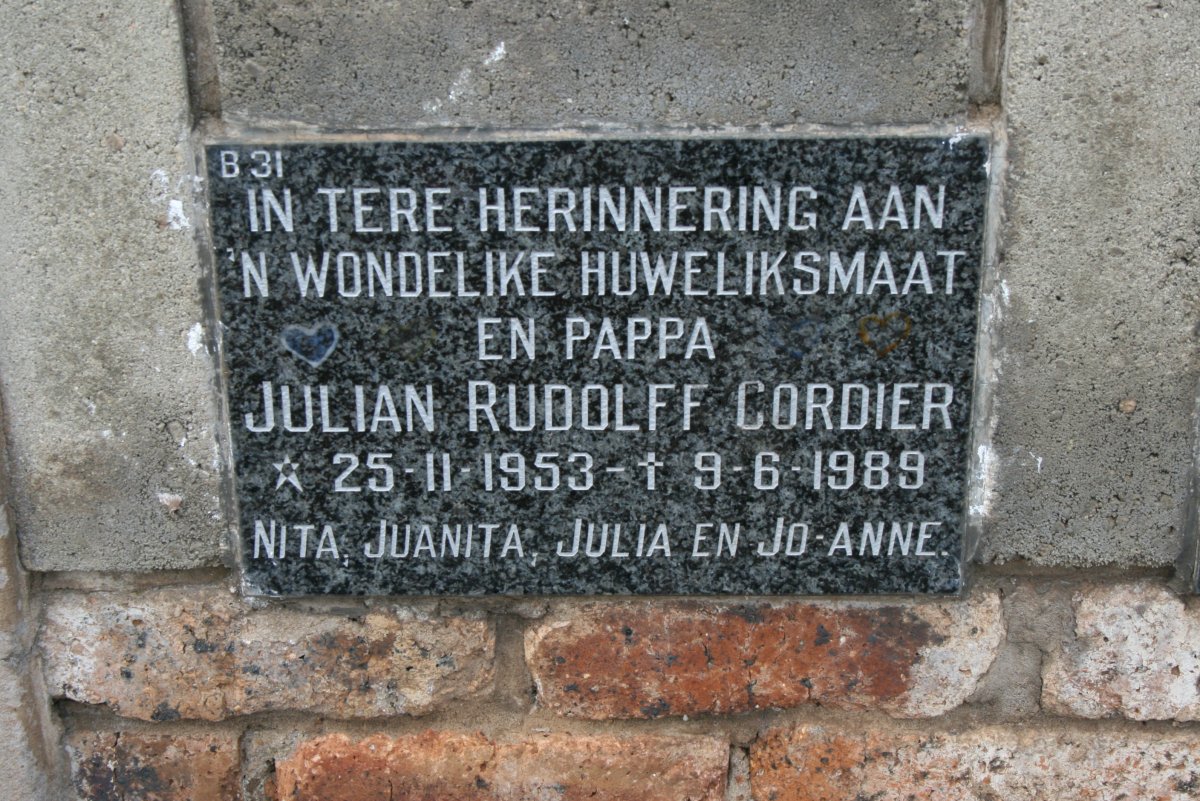 B 31
IN TERE HERINNERING AAN
'N WONDELIKE HUWELIKSMAAT
EN PAPPA
JULIAN RUDOLFF CORDIER
☆ 25-11-1953-† 9-6-1989
NITA, JUANITA, JULIA EN JO-ANNE.